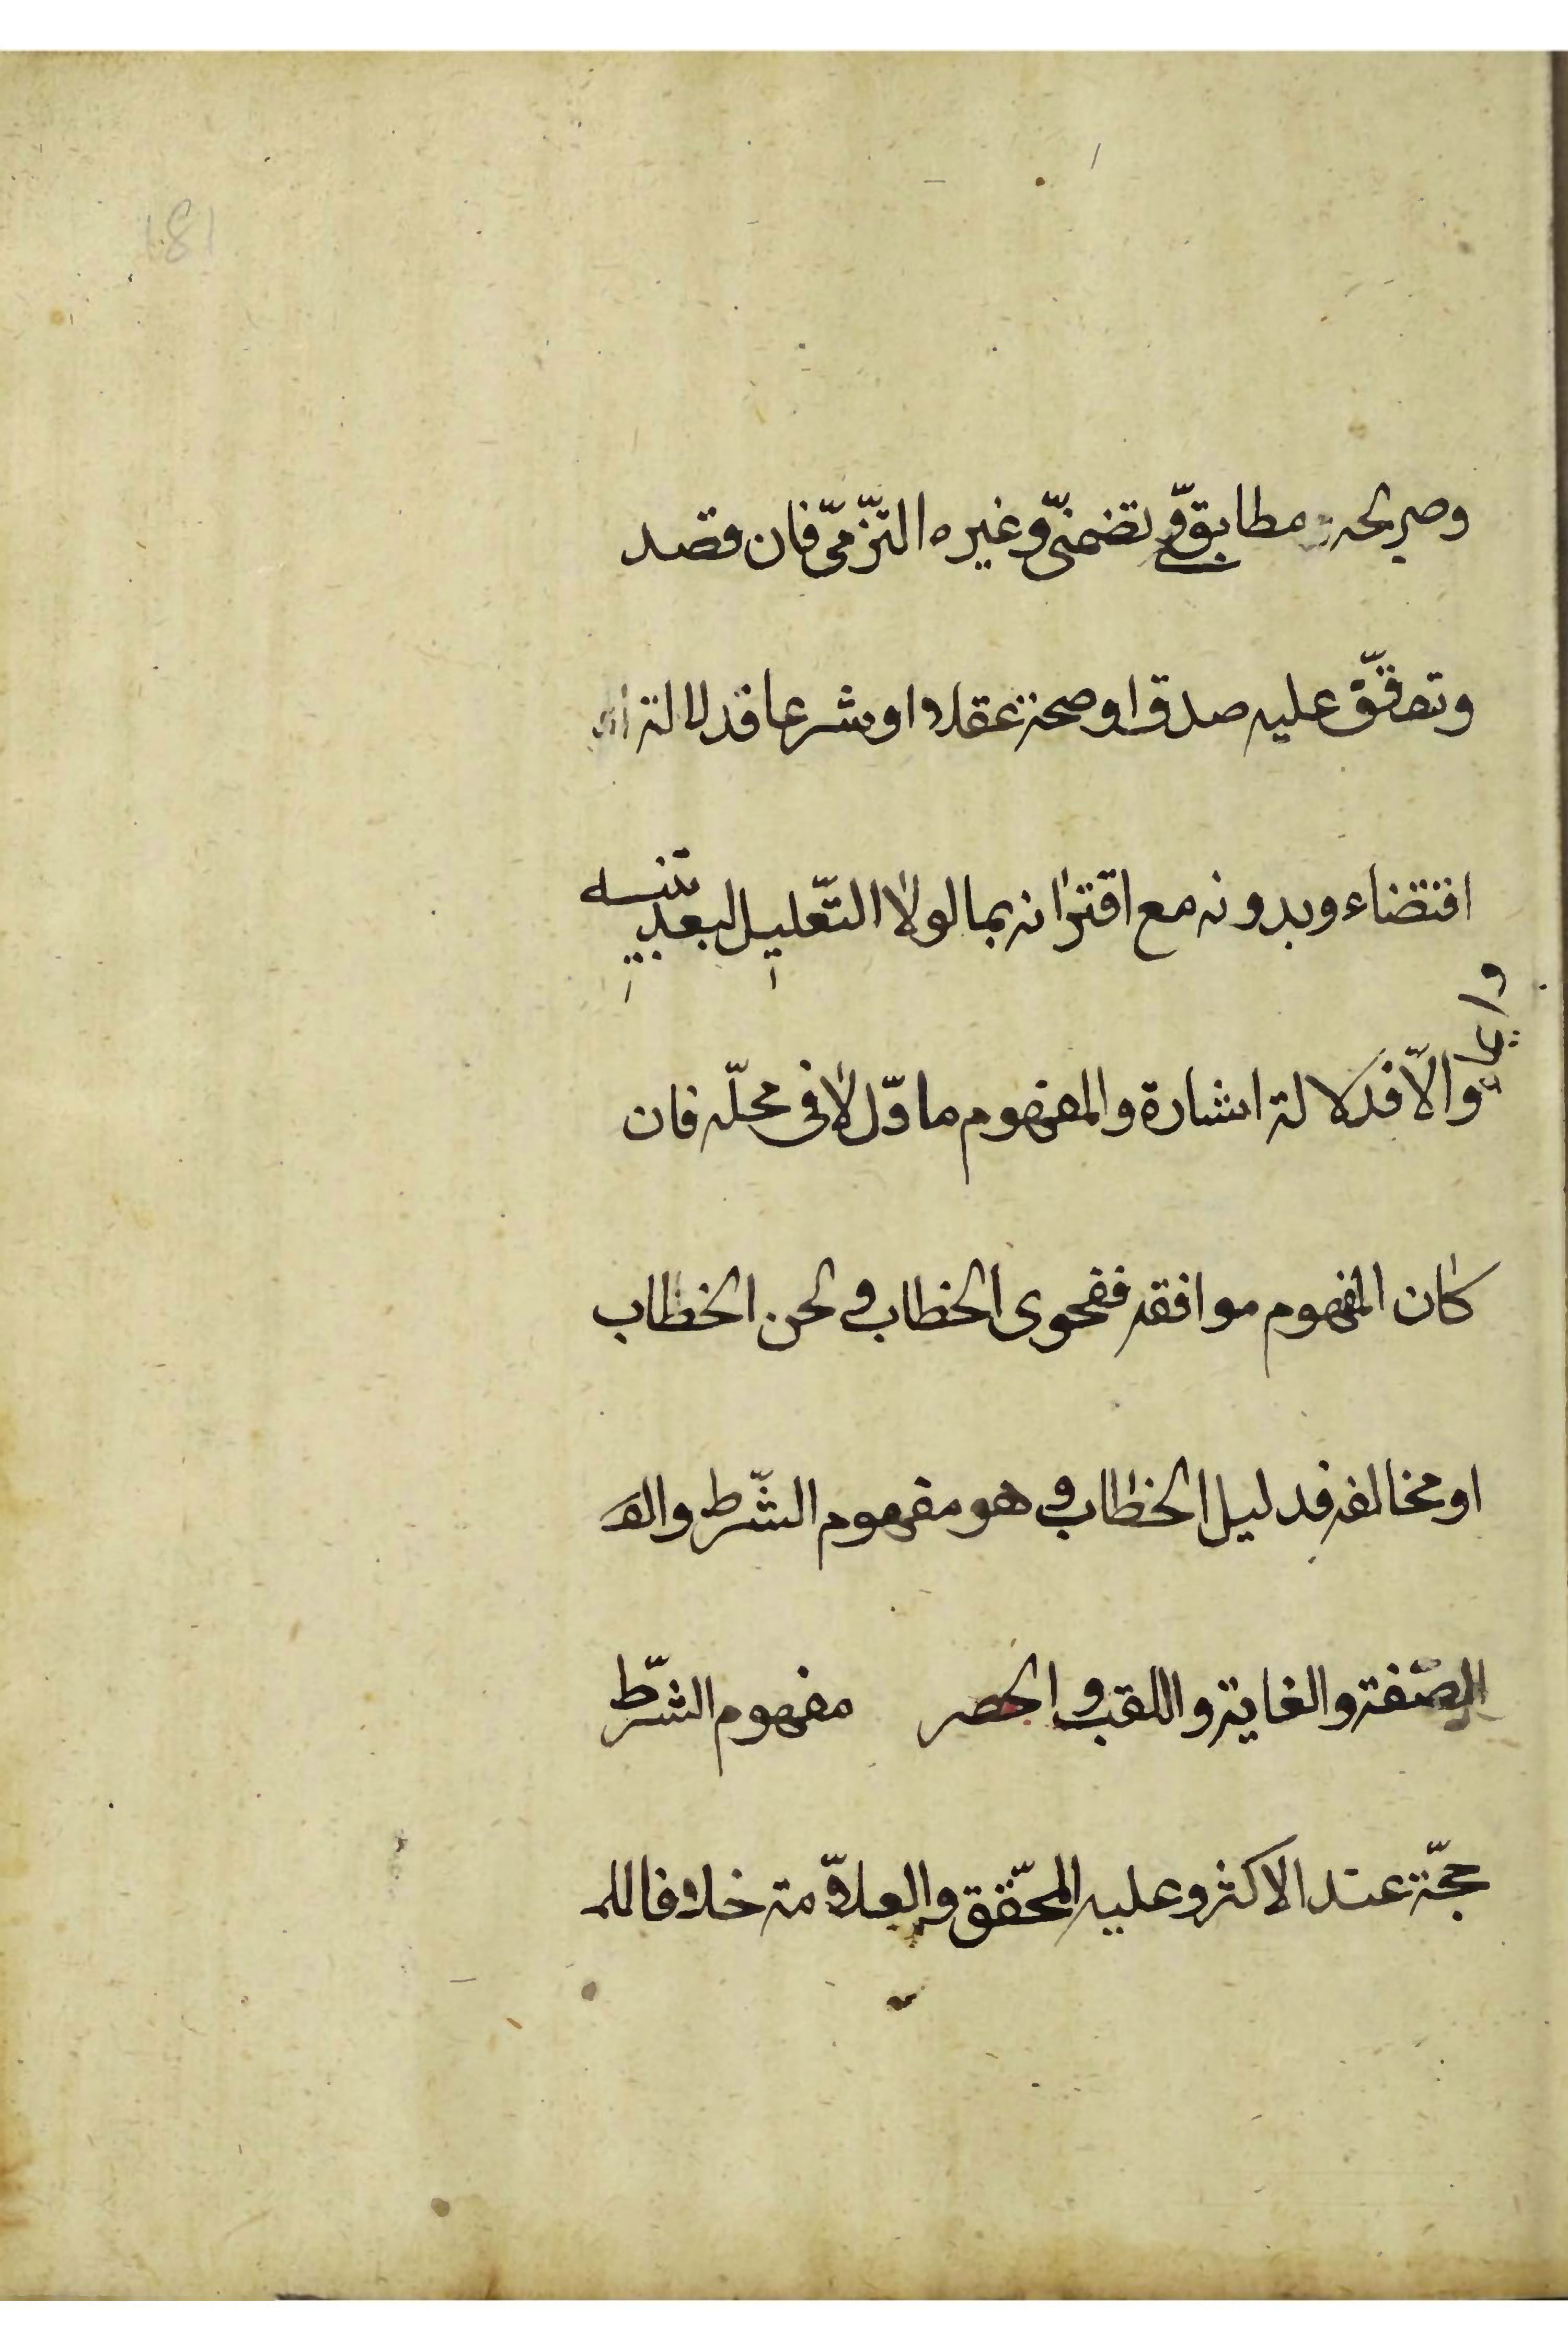 وصريحه مطابقيّ و تضمنيّ وغيره التزميّ فان قصد
وتوقّف عليه صدق او صحة عقلا او شرعا فدلالة
اقتضاء وبدونه مع اقترانه بما لولا التّعليل لبعد تنبيه
وايماء
والّا فدلالة اشارة والمفهوم ما دلّ لا في محلّه فان
كان المفهوم موافقه ففحوى الخطاب و لحن الخطاب
او مخالفه فدليل الخطاب و هو مفهوم الشّرط والصّ
الصّفة والغاية واللقب والحصر مفهوم الشّرط
حجّة عند الاكثر وعليه المحقّق والعلّامة خلافا للم
181